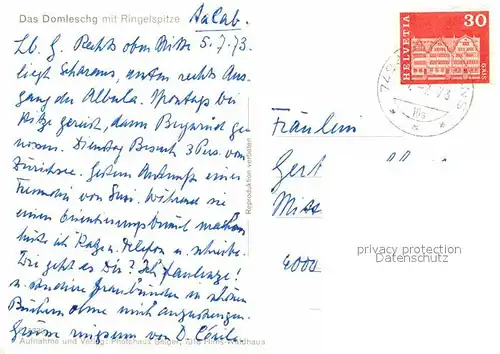 Das Domleschg mit Ringelspitze
Lb. G. Rechts oben Mitte 5.7.73.
liegt Scharans, unten rechts Aus-
gang der Albula. Montags bei
Hitze gereist, dann Bergwind ge-
nossen. Dienstag Besuch 3 Pers. vom
Zürichsee. Gestern Ankunft einer
Freundin von Susi. Während sie
einen Orientierungsbummel machen
hüte ich Katze u. Telefon u. schreibe.
Wie geht es Dir? Ich faulenze!
u. studiere Graubünden in schönen
Büchern ohne mich anzustrengen.
Grüsse ringsum von D. Cécile
Aufnahme und Verlag: Photohaus Geiger, Flims-Waldhaus
Reproduktion verboten
HELVETIA
30
GAIS
73
Fräulein
Gert
Miss
4000
privacy protection
Datenschutz